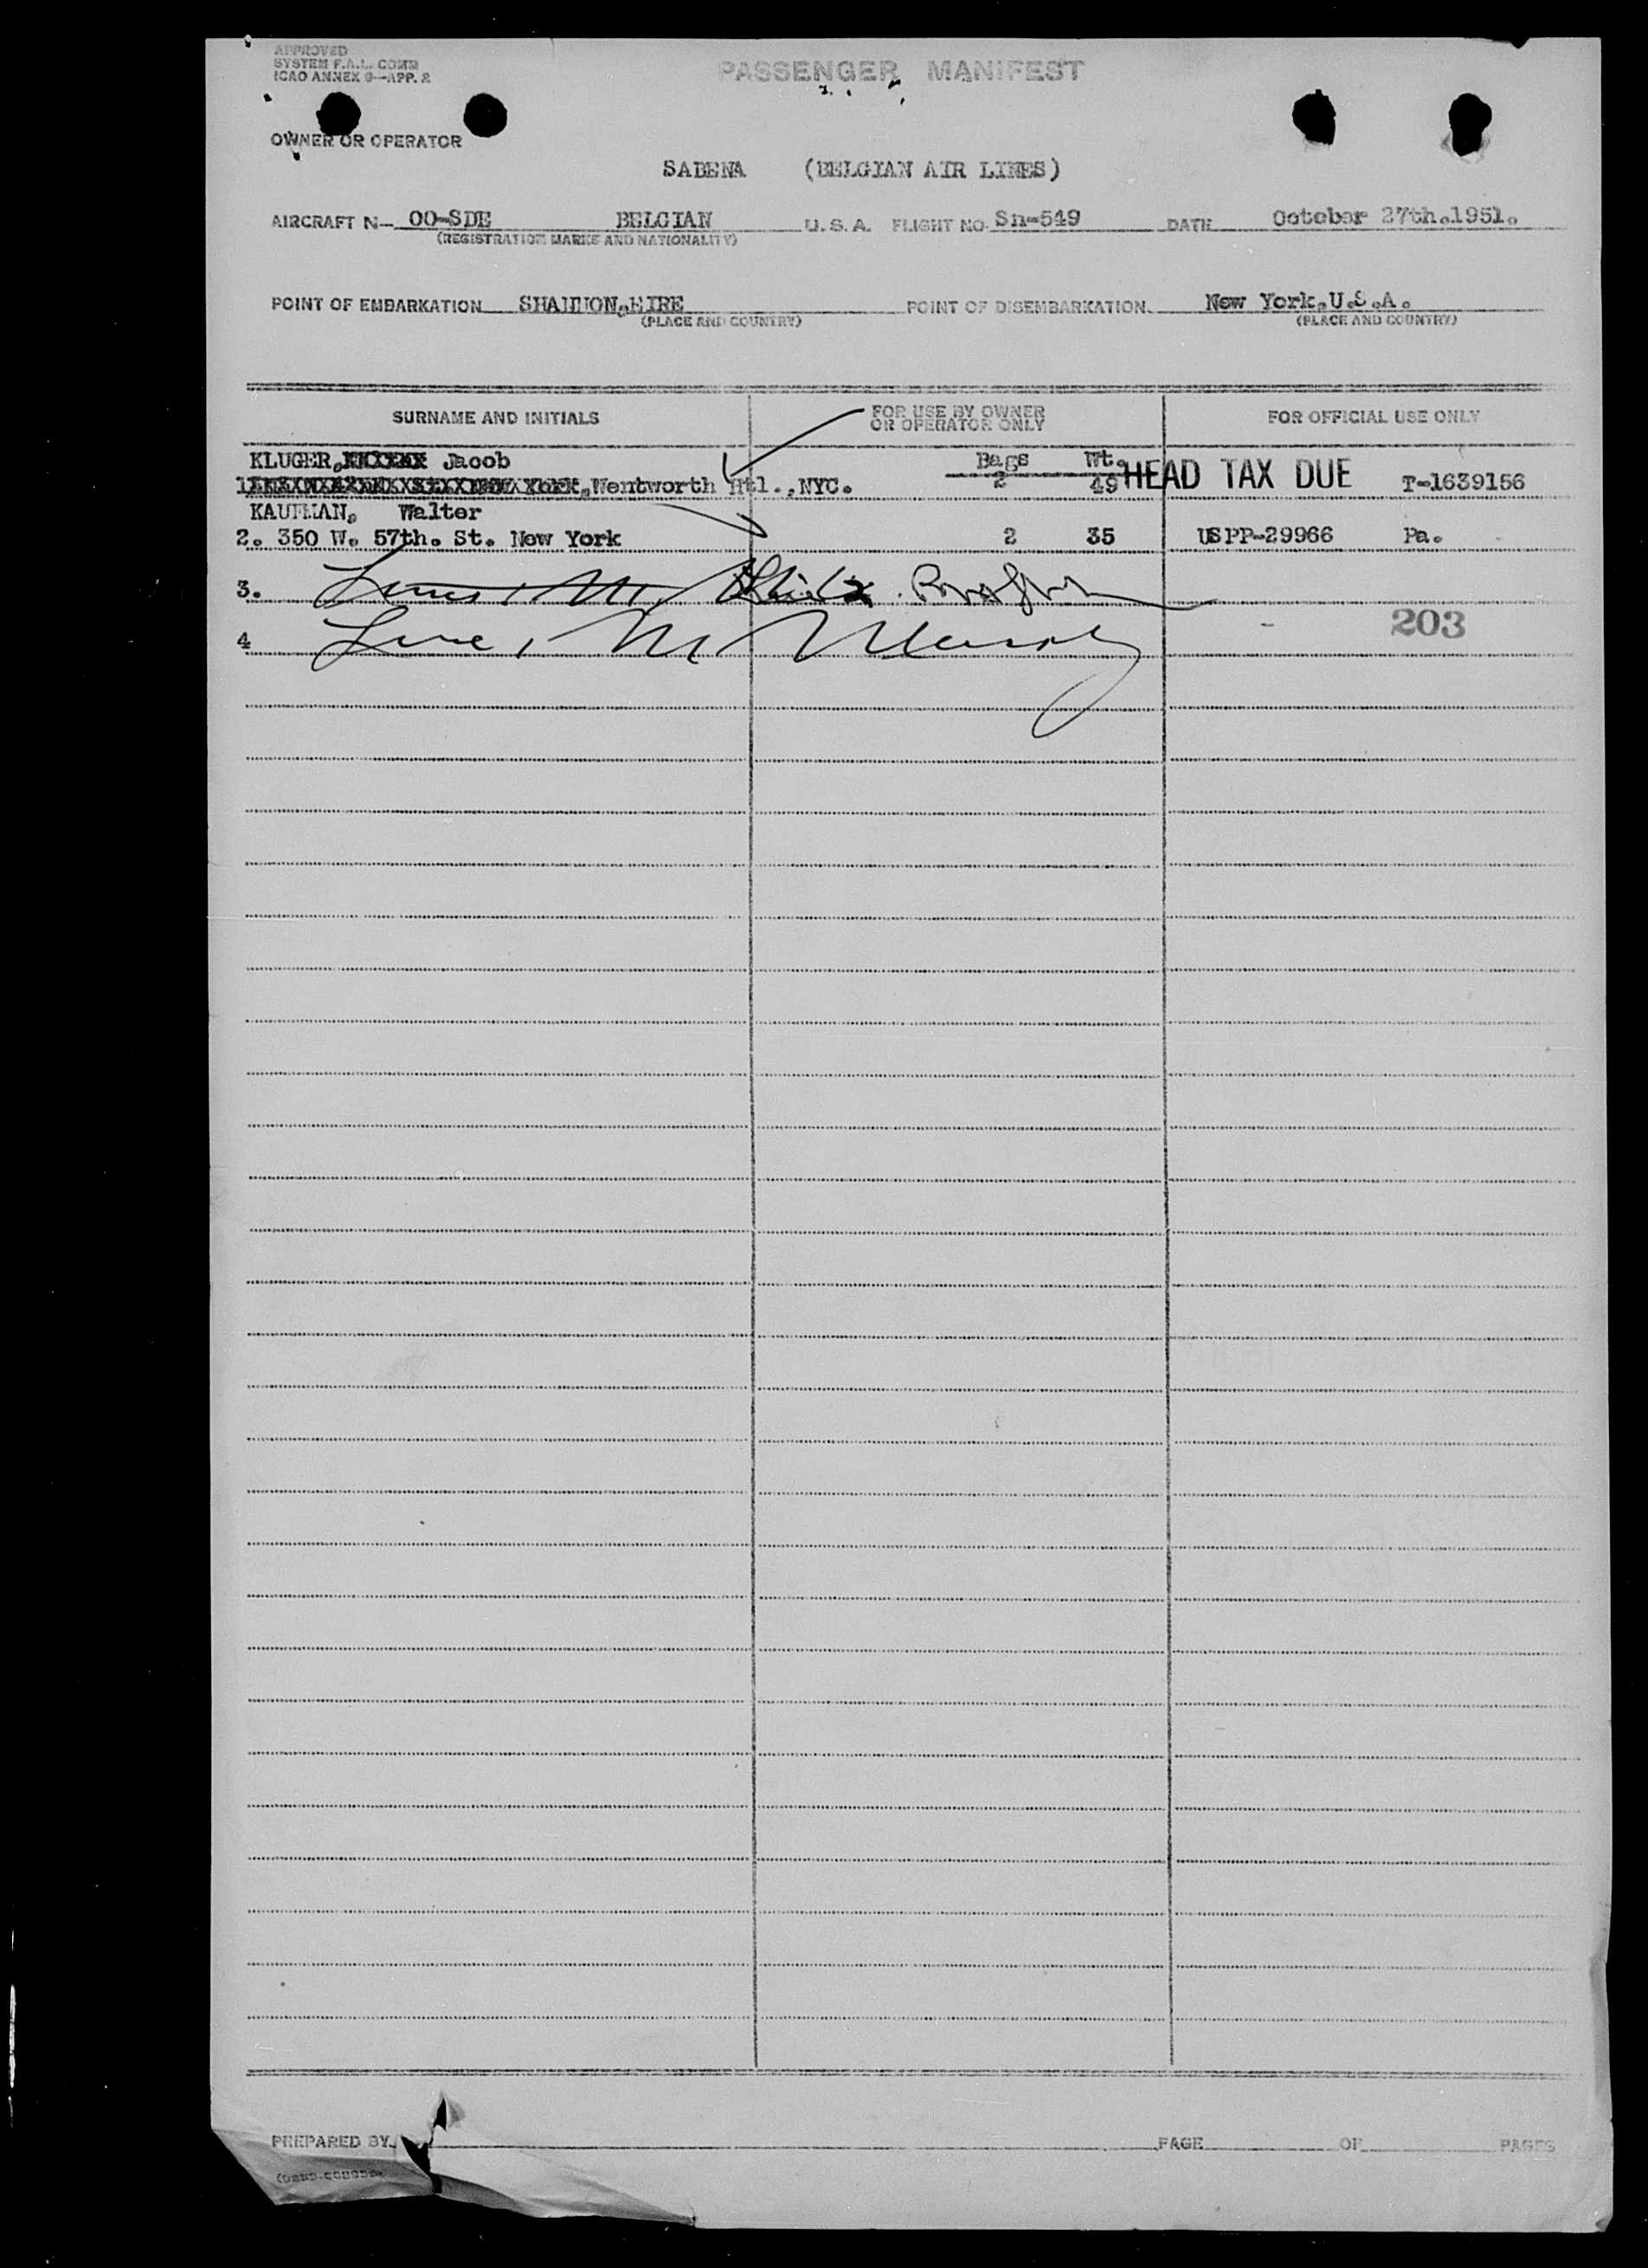 APPROVED
SYSTEM F.A.L. COMM
ICAO ANNEX 9—APP. 2
PASSENGER MANIFEST
OWNER OR OPERATOR
SABENA (BELGIAN AIR LINES)
AIRCRAFT N— OO-SDE BELGIAN U. S. A. FLIGHT NO. Sn-549 DATE October 27th.1951.
(REGISTRATION MARKS AND NATIONALITY)
POINT OF EMBARKATION SHANNON,EIRE POINT OF DISEMBARKATION New York,U.S.A.
(PLACE AND COUNTRY) (PLACE AND COUNTRY)
SURNAME AND INITIALS FOR USE BY OWNER OR OPERATOR ONLY FOR OFFICIAL USE ONLY
KLUGER, Jacob Bags Wt.
1 Wentworth Htl.,NYC. 2 49 HEAD TAX DUE T-1639156
KAUFMAN, Walter
2. 350 W. 57th. St. New York 2 35 USPP-29966 Pa.
3.
203
4
PREPARED BY PAGE OF PAGES